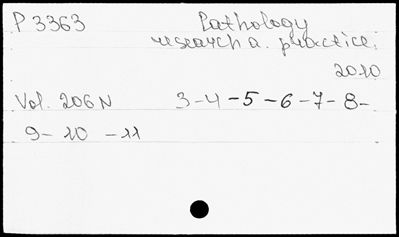 P 3363 Pathology
research a. practice;
2010
Vol. 206 N 3-4-5-6-7-8-
9-10-11